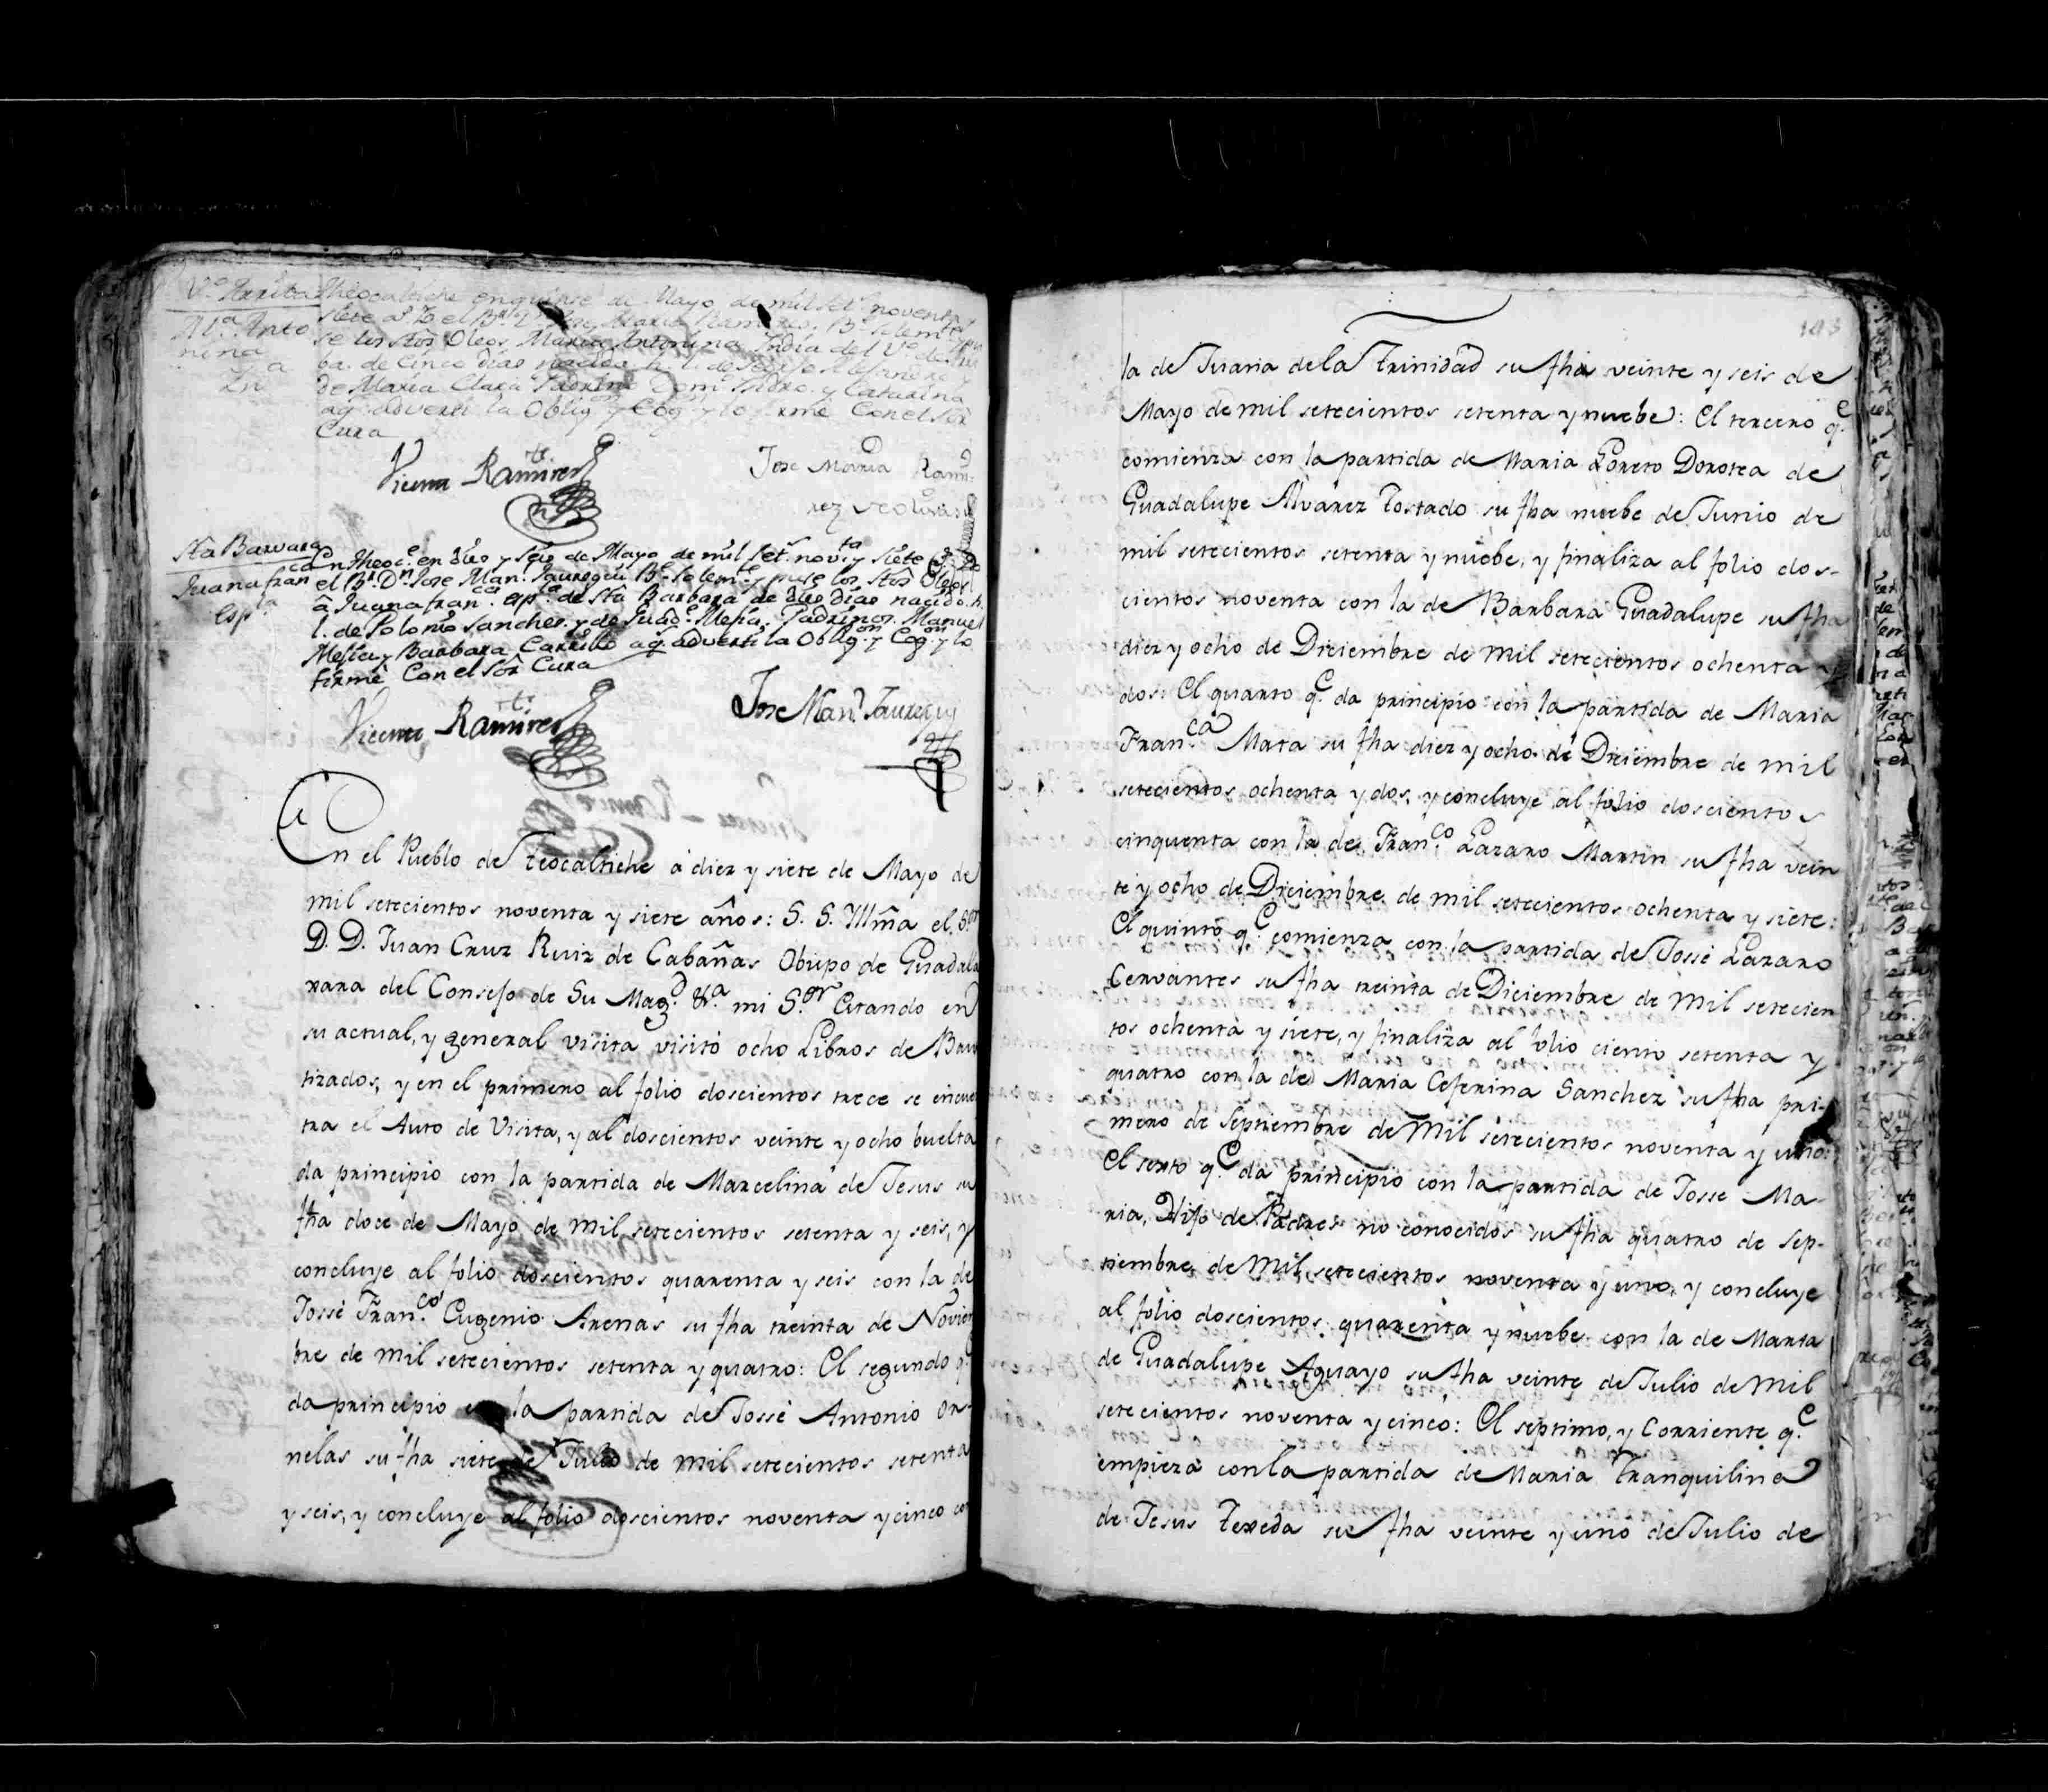 Vo. Arriba
Ma. Anto
nina
Ina
Theocaltiche en quinse de Mayo de mil setso. noventa y
siete as. Yo el Br. Dn. Jose Maria Ramires. Be. solemte. y pu
se los stos Oleos Maria Antonina India del Vo. de Arri
ba. de cinco dias nacida h. l. de
de Maria Clara Padrinos Domo. Isidro. y Catarina
aq. adverti la Obligon. y Cogon. y lo firmè Con el Sôr
Cura
Vicente Ramires
Jose Maria Rami
rez
Sta Barvara
Juana franca.
Espa.
En Theoce. en dies y seis de Mayo de mil sets. novta. y siete
el Br. Dn. Jose Man. Jauregui Be. Solemte. y puse los Stos Oleos
â Juana franca. espa. de Sta Barbara de dies dias nacido. h.
l. de Polonio Sanches. y de Guade. Mesia. Padrinos. Manuel
Mesia y Barbara Carrillo aq. adverti la Obligon. y Cogon. y lo
firmè Con el Sôr Cura
Vicente Ramires
Jose Manl. Jauregui
En el Pueblo de Teocaltiche à diez y siete de Mayo de
mil setecientos noventa y siete años: S. S. Yllmã el Sor
D. D. Juan Cruz Ruiz de Cabañas Obispo de Guadala
xara del Consejo de Su Magd. &a. mi Sor. Estando en
su actual, y general visita visitò ocho Libros de Bau
tizados, y en el primero al folio doscientos trece se encuen
tra el Auto de Visita, y al doscientos veinte y ocho buelta
da principio con la partida de Marcelina de Jesus su
fha doce de Mayo de mil setecientos setenta y seis, y
concluye al folio doscientos quarenta y seis con la de
Jossè Franco. Eugenio Arenas su fha treinta de Noviem
bre de mil setecientos setenta y quatro: El segundo qe
da principio la partida de Jossè Antonio Or-
nelas su fha siete de Julio de mil setecientos setenta
y seis, y concluye al folio doscientos noventa y cinco con
143
la de Juana de la Trinidad su fha veinte y seis de
Mayo de mil setecientos setenta y nuebe: El tercero qe.
comienza con la partida de Maria Loreto Dorotea de
Guadalupe Alvarez Tostado su fha nuebe de Junio de
mil setecientos setenta y nuebe, y finaliza al folio dos-
cientos noventa con la de Barbara Guadalupe su fha
diez y ocho de Diciembre de mil setecientos ochenta y
dos: El quarto qe. da principio con la partida de Maria
Franca. Mata su fha diez y ocho de Diciembre de mil
setecientos ochenta y dos, y concluye al folio doscientos
cinquenta con la de Franco. Lazaro Martin su fha vein
te y ocho de Diciembre de mil setecientos ochenta y siete:
El quinto qe. comienza con la partida de Jossè Lazaro
Cervantes su fha treinta de Diciembre de mil setecien
tos ochenta y siete, y finaliza al folio ciento setenta y
quatro con la de Maria Ceferina Sanchez su fha pri-
mero de Septiembre de mil setecientos noventa y uno:
El sexto qe. da principio con la partida de Josse Ma-
ria, Hijo de Padres no conocidos su fha quatro de Sep-
tiembre de mil setecientos noventa y uno, y concluye
al folio doscientos quarenta y nuebe con la de Marta
de Guadalupe Aguayo su fha veinte de Julio de mil
setecientos noventa y cinco: El septimo, y Corriente qe.
empieza con la partida de Maria Tranquilina
de Jesus Texeda su fha veinte y uno de Julio de